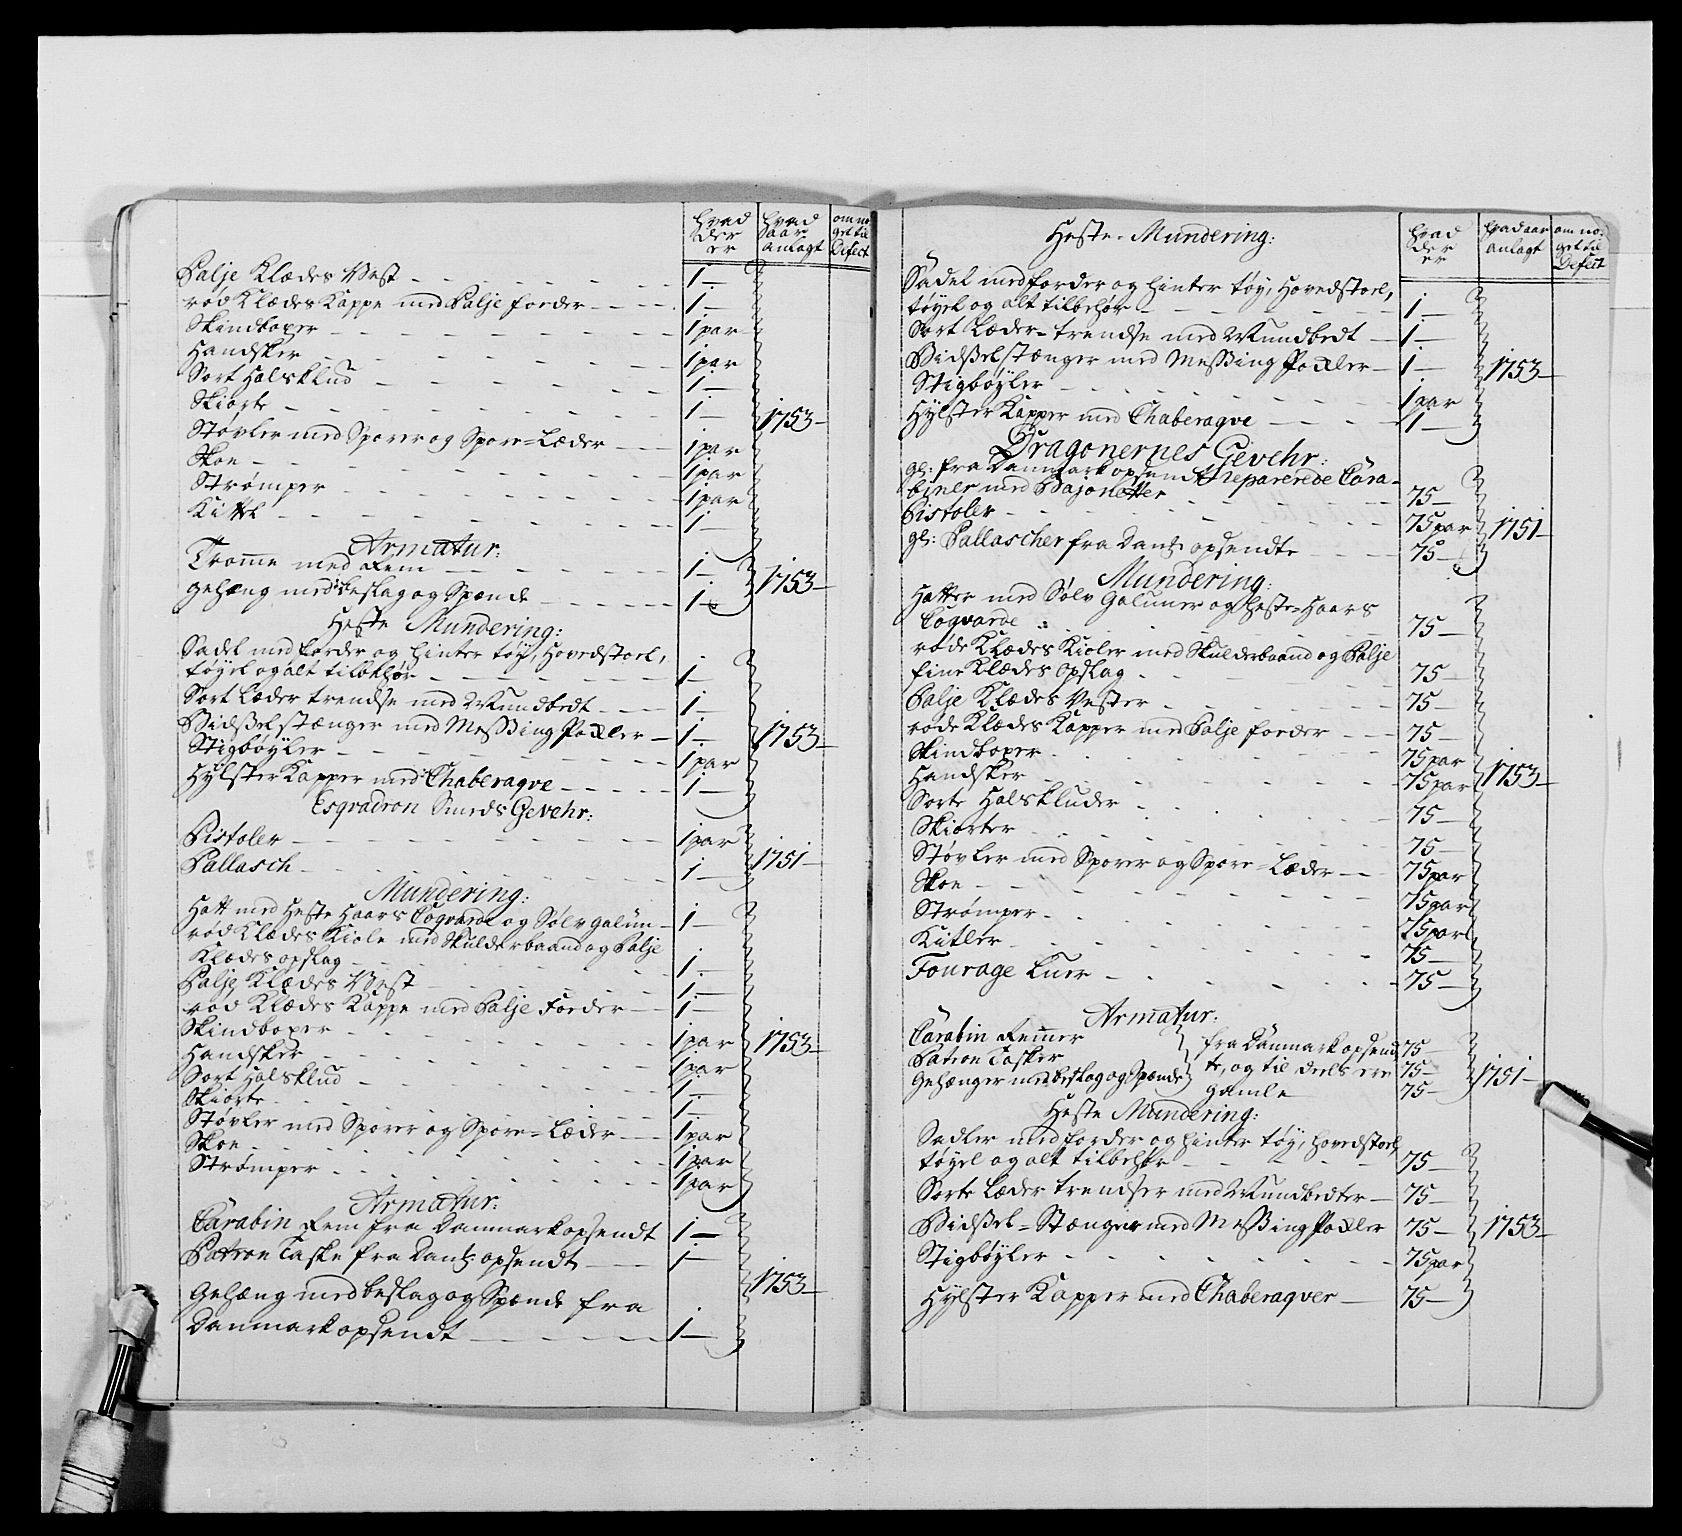 hvad der er
hvad aar anlagt
om no- get til Defect
Palje Klædes Vest 1
rød Klædes Kappe med Palje foeder 1
Skindboxer 1 par
Handsker 1 par
Sort Halsklud 1
Skiorte 1
Støvler med Sporer og Spore-Læder 1 par 1753
Skoe 1 par
Strømper 1 par
Kittel 1
Armatur:
Tromme med Rem 1
gehæng med beslag og Spænde 1 1753
Heste Mundering:
Sadel med forder og hinter tøy, Hovedstoel,
tøyel og alt tilbehør 1
Sort Læder trendse med Mundbedt 1
Bidsselstænger med Messing Poxler 1 1753
Stigbøyler 1 par
Hylster Kapper med Chaberaqve 1
Esqvadron Smeds Gevehr:
Pistoler 1 par
Pallasch 1 1751
Mundering:
Hatt med Heste Haars Coqvarde og Sølv galun 1
rød Klædes Kiole med Skulderbaand og Palje
Klædes opslag 1
Palje Klædes Vest 1
rød Klædes Kappe med Palje Foeder 1
Skindboxer 1 par 1753
Handsker 1 par
Sort Halsklud 1
Skiorte 1
Støvler med Sporer og Spore-Læder 1 par
Skoe 1 par
Strømper 1 par
Armatur:
Carabin Rem fra Danmark opsendt 1
Patron Taske fra Dank: opsendt 1
Gehæng med beslag og Spænde fra 1753
Danmark opsendt 1
Heste-Mundering:
hvad der er
hvad aar anlagt
om no- get til Defect
Sadel med forder og hinter tøy, Hovedstoel,
tøyel og alt tilbehør 1
Sort Læder-trendse med Mundbedt 1
Bidsselstænger med Messing Poxler 1 1753
Stigbøyler 1 par
Hylster Kapper med Chaberaqve 1
Dragonernes Gevehr:
gl: fra Danmark opsendt reparerede Cara-
biner med Bajonetter 75
Pistoler 75 par 1751
gl: Pallascher fra Dank: opsendte 75
Mundering:
Hatter med Sølv Galuner og Heste-Haars
Coqvarde 75
røde Klædes Kioler med Skulderbaand og Palje
fine Klædes Opslag 75
Palje Klædes Vester 75
røde Klædes Kapper med Palje foeder 75
Skindboxer 75 par
Handsker 75 par 1753
Sorte Halskluder 75
Skiorter 75
Støvler med Sporer og Spore-Læder 75 par
Skoe 75 par
Strømper 75 par
Kitler 75
Fourage Luer 75
Armatur:
Carabin Remmer fra Danmark opsend- 75
Patron Tasker te, og til deels ere 75
Gehænger med beslag og Spænde gamle 75 1751
Heste Mundering:
Sadler med forder og hinter tøy, Hovedstoel,
tøyel og alt tilbehør 75
Sorte Læder trendser med Mundbedter 75
Bidssel-Stænger med Messing Poxler 75 1753
Stigbøyler 75 par
Hylster Kapper med Chaberaqver 75